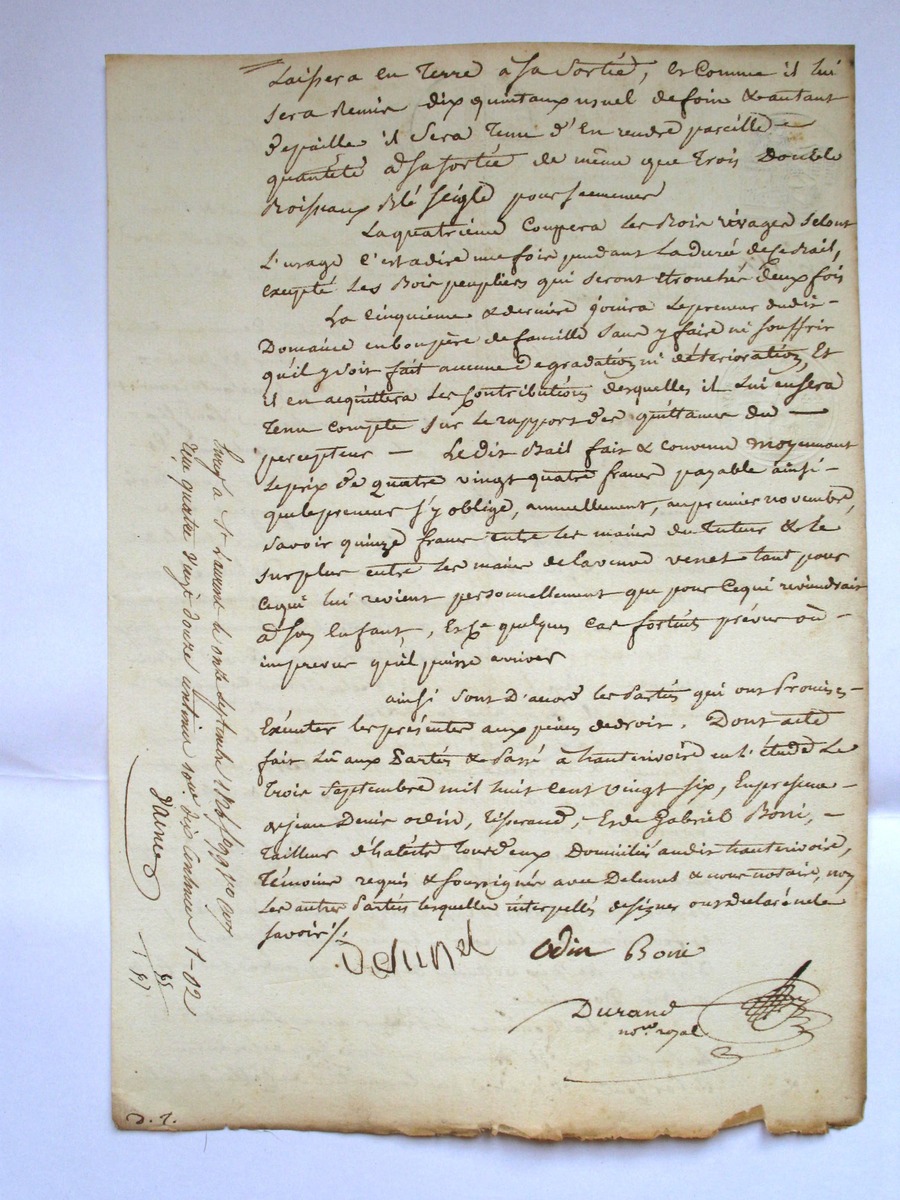 Laissera en Terre a sa sortie, et Comme il lui
sera Remis dix quintaux usuel de foin & autant
d'epaille il Sera Tenu d'En rendre pareille
quantité a sa sortie de même que Trois Double
Boisseaux Blé Seigle pour seemences
La quatrieme Coupera les Bois revages Selont
L'usage C'est a dire une fois pendant La durée de Ce Bail,
excepté Les Bois peupliers qui seront Etronchés deux fois
La Cinquieme & derniere Jouira Le preneur dudit
Domaine en bon père de famille Sans y faire ni Souffrir
qu'il y Soit fait aucune Degradation ni déterioration, Et
il en acquittera Les Contributions desquelles il Lui en sera
Tenu compte sur Le rapport des quittances du
percepteur — Le dit Bail fait & convenu moyennant
Le prix de quatre vingt quatre francs payable ainsi
que le preneur s'y oblige, annuellement, au premier novembre,
savoir quinze francs entre les mains du Tuteur & le
surplus entre Les mains de la veuve venet tant pour
Cequi lui revient personnellement que pour Cequi reviendrait
a son Enfant, Et Ce quelques Cas fortuits prévus ou
imprevus qu'il puisse arriver
ainsi sont D'accord les Parties qui ont Promises
Exécuter les présentes aux peines de droit. Dont acte
fait Lû aux Parties & Passé a hauterivoire en l'étude Le
Trois Septembre mil huit Cent vingt Six, En presence
de jean Denis odin, Tisserand, Et de Gabriel Boni,
Tailleur d'habits Tous deux Domiciliés audit hauterivoire,
Témoins requis & soussignés avec Delunel & nous notaire, non
Les autres Parties lesquelles interpellés de signer ont declaré ne le
savoir /.
Delunel Odin Boni
Durand
nore royal
Enregé a St Laurent le onze Septembre 1826 fo 99 vo
Reçu quatre vingt douze centimes dix Centimes 1-02
D. 7.